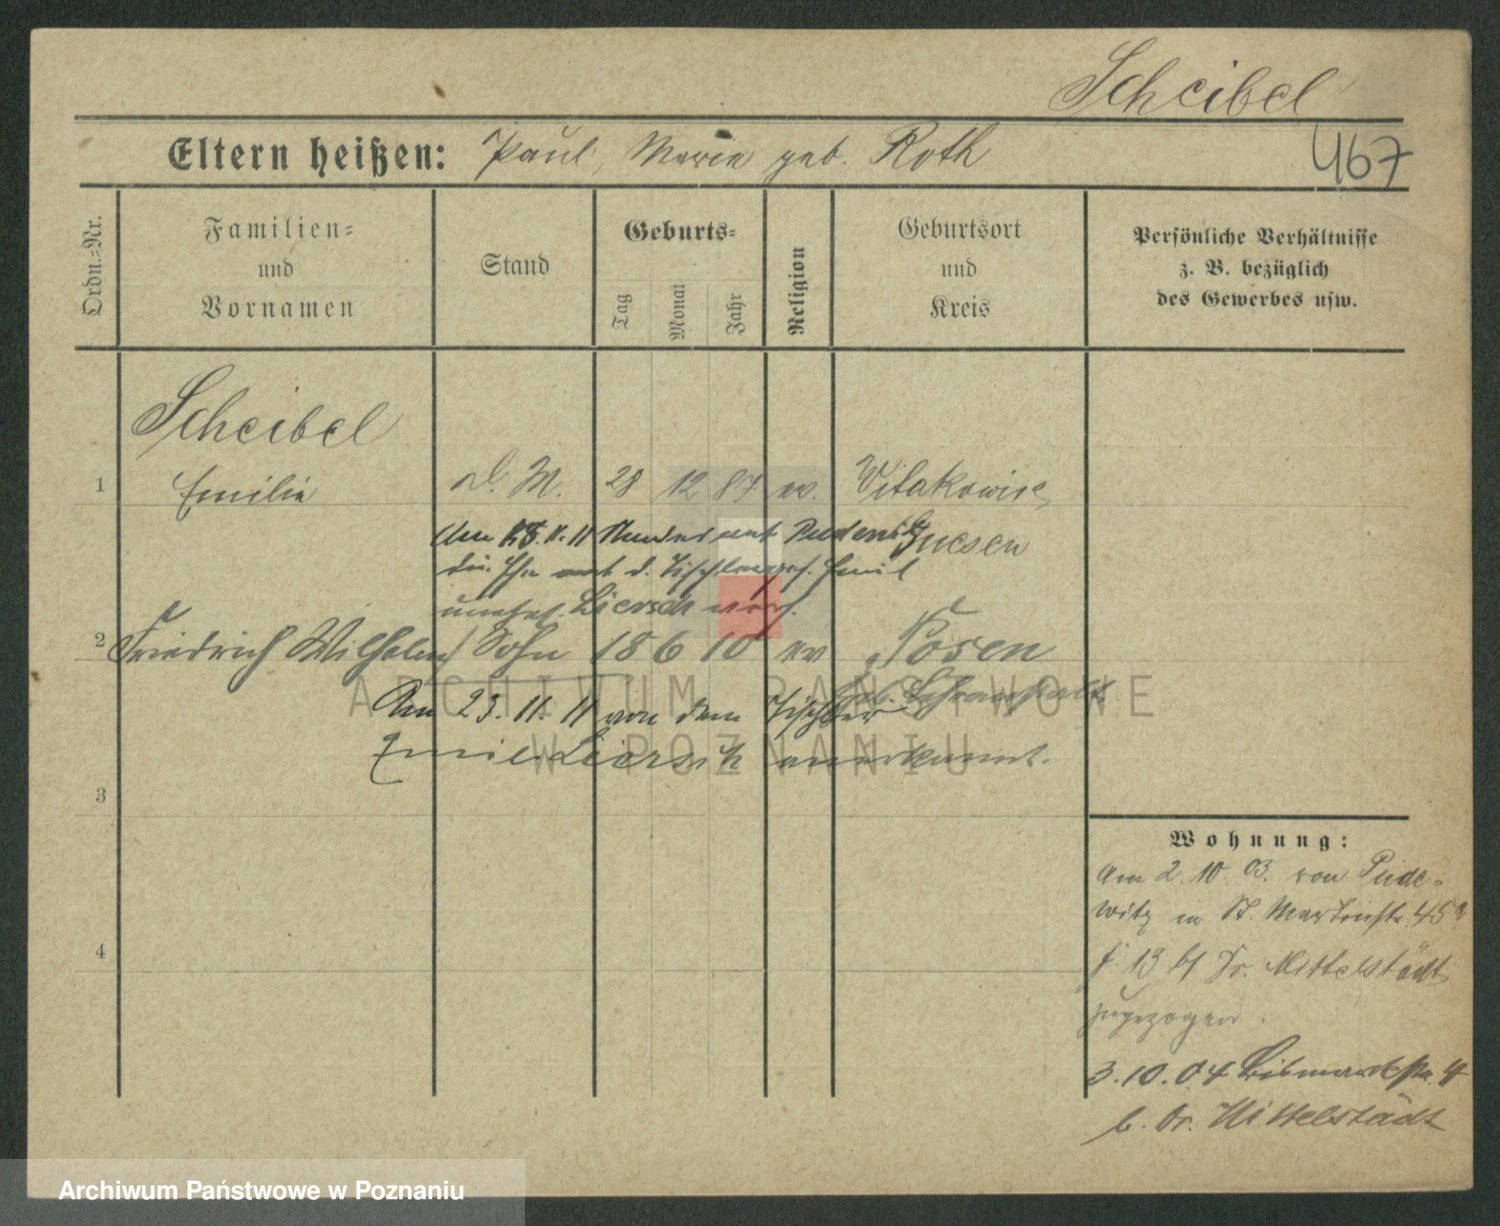 Scheibel
467
Eltern heißen: Paul, Marie geb. Roth
Ordn.-Nr.
Familien-
und
Vornamen
Stand
Geburts-
Tag
Monat
Jahr
Religion
Geburtsort
und
Kreis
Persönliche Verhältnisse
z. B. bezüglich
des Gewerbes usw.
Scheibel
1 Emilie D. M. 28 12 87 ev. Witakowice
Am 18.11.11 Standesamt Pudewitz Gnesen
die Ehe mit d. Tischlerges. Emil
unehel. Liersch
2 Friedrich Wilhelm Sohn 18 6 10 ev Posen
Am 23. 11. 11 von dem Tischler
Emil Liersch anerkannt.
3
4
Wohnung:
Am 2. 10. 03. von Pude-
witz in St. Martinstr. 45a
b/ Dr. Mittelstädt
zugezogen.
3.10.04 Bismarckstr. 4
b. Dr. Mittelstädt
ARCHIWUM PAŃSTWOWE
W POZNANIU
Archiwum Państwowe w Poznaniu